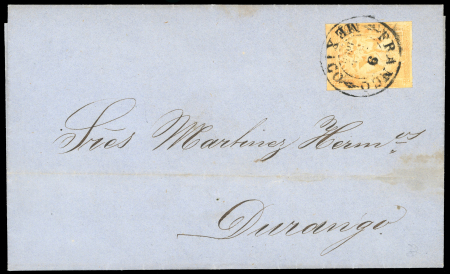 FRANCO
MEXICO
9
Sres Martinez Herm.os
Durango.